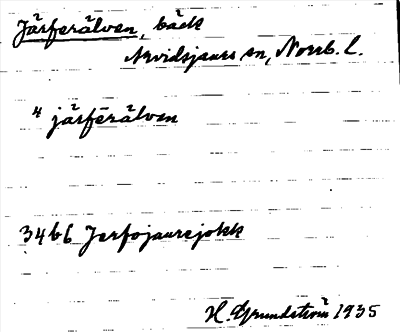 Järferälven, bäck
Arvidsjaurs sn, Norrb. l.
4 järferälven
3466 Jerfojaurejokk
H. Grundström 1935